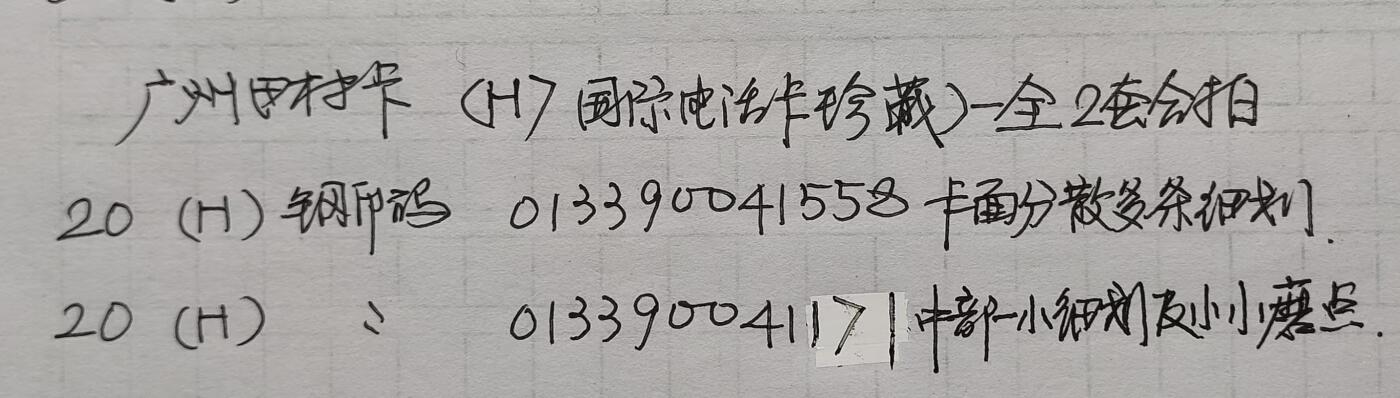 广州田村卡 (H) 国际电话卡珍藏)一全2套合拍
20 (H) 钢印码 013390041558 卡面分散多条细划.
20 (H) 〃 013390041171 中部一小细划及小小磨点.